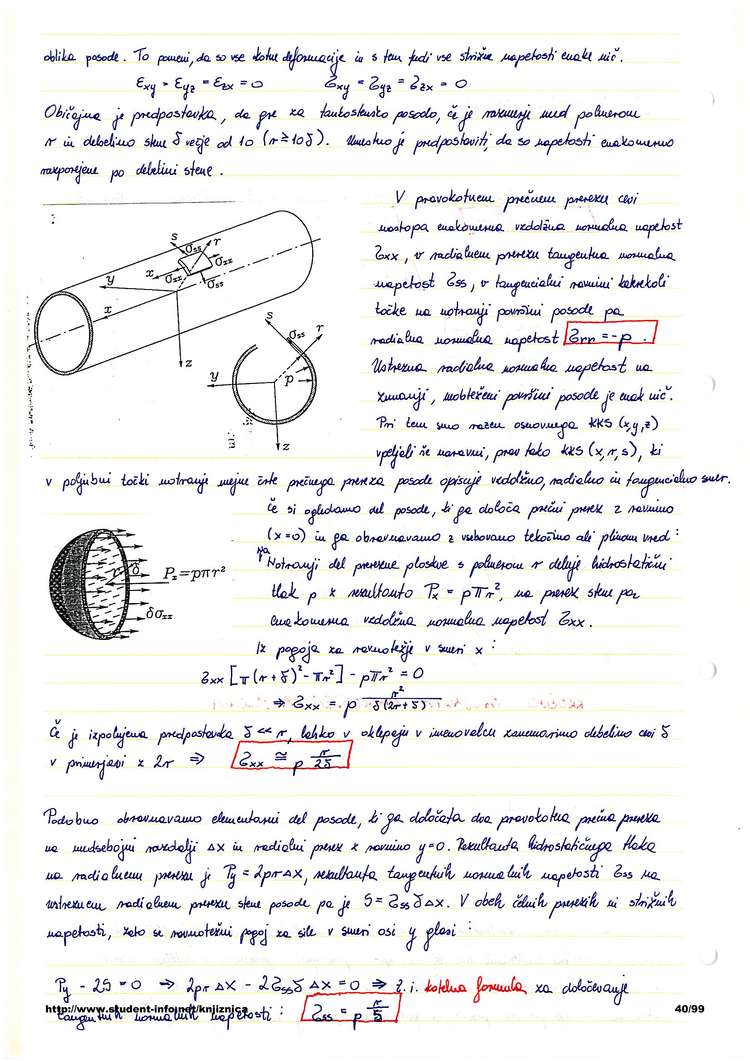 oblika posode. To pomeni, da so vse kotne deformacije in s tem tudi vse strižne napetosti enake nič.
εxy = εyz = εzx = 0 σxy = σyz = σzx = 0
Običajna je predpostavka, da gre za tankostensko posodo, če je razmerje med polmerom
r in debelino stene δ večje od 10 (r ≥ 10δ). Umestno je predpostaviti, da so napetosti enakomerno
razporejene po debelini stene.
V pravokotnem prečnem prerezu cevi
nastopa enakomerna vzdolžna normalna napetost
σxx, v radialnem prerezu tangentna normalna
napetost σss, v tangencialni ravnini katerekoli
točke na notranji površini posode pa
radialna normalna napetost σrr = -p.
Ustrezna radialna normalna napetost na
zunanji, neobteženi površini posode je enak nič.
Pri tem smo razen osnovnega KKS (x,y,z)
vpeljali še naravni, prav tako KKS (x,r,s), ki
v poljubni točki notranje mejne črte prečnega prereza posode opisuje vzdolžno, radialno in tangencialno smer.
s
σss
r
σxx
x
σxx
σss
y
x
z
s
σss
r
y
p
z
Če si ogledamo del posode, ki ga določa prečni prerez z ravnino
(x=0) in ga obravnavamo z vsebovano tekočino ali plinom vred:
Na
Notranji del prerezne ploskve s polmerom r deluje hidrostatični
tlak p z rezultanto Px = pπr², na prerez stene pa
enakomerna vzdolžna normalna napetost σxx.
r δ Px=pπr²
δσxx
Iz pogoja za ravnotežje v smeri x:
σxx [π(r+δ)² - πr²] - pπr² = 0
⇒ σxx = p r² / δ(2r+δ)
Če je izpolnjena predpostavka δ << r, lahko v oklepaju v imenovalcu zanemarimo debelino cevi δ
v primerjavi z 2r ⇒ σxx ≅ p r/2δ
Podobno obravnavamo elementarni del posode, ki ga določata dva pravokotna prečna prereza
na medsebojni razdalji Δx in radialni prerez z ravnino y=0. Rezultanta hidrostatičnega tlaka
na radialnem prerezu je Py = 2prΔx, rezultanta tangentnih normalnih napetosti σss na
ustreznem radialnem prerezu stene posode pa je S = σss δ Δx. V obeh čelnih prerezih ni strižnih
napetosti, zato se ravnotežni pogoj za sile v smeri osi y glasi:
Py - 2S = 0 ⇒ 2prΔx - 2σssδΔx = 0 ⇒ t.i. kotelna formula za določevanje
tangentnih normalnih napetosti: σss = p r/δ
http://www.student-info.net/knjiznica 40/99